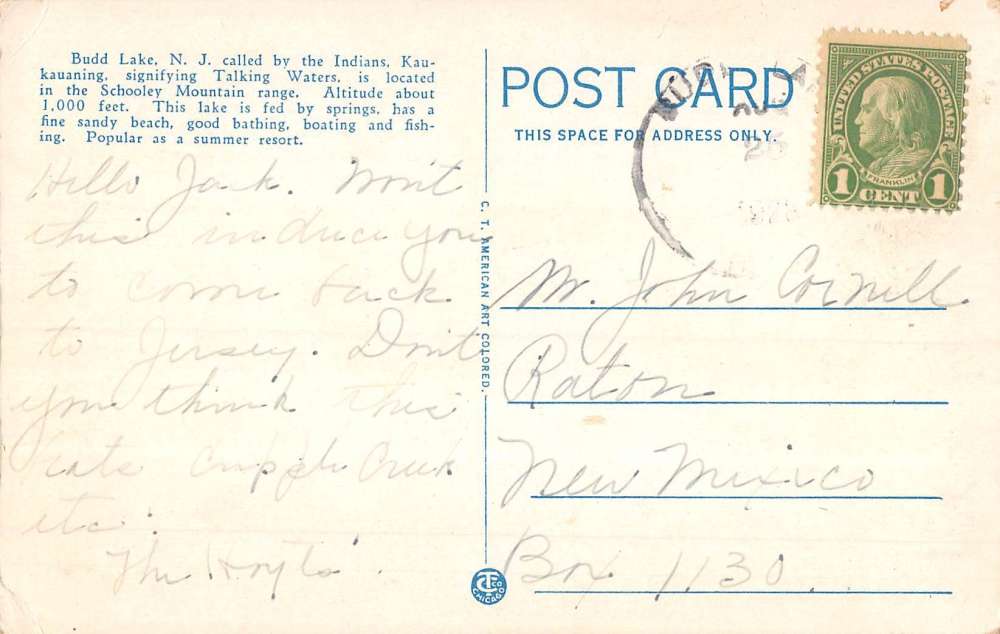 Budd Lake, N. J. called by the Indians, Kau-
kauaning, signifying Talking Waters, is located
in the Schooley Mountain range. Altitude about
1,000 feet. This lake is fed by springs, has a
fine sandy beach, good bathing, boating and fish-
ing. Popular as a summer resort.
Hello Jack. Won't
this induce you
to come back
to Jersey. Don't
you think this
eats Cripple Creek
etc.
The Hoyts.
C. T. AMERICAN ART COLORED.
CTCO
CHICAGO
POST CARD
THIS SPACE FOR ADDRESS ONLY.
UNITED STATES POSTAGE
FRANKLIN
1 CENT 1
Mr. John Cornell
Raton
New Mexico
Box 1130